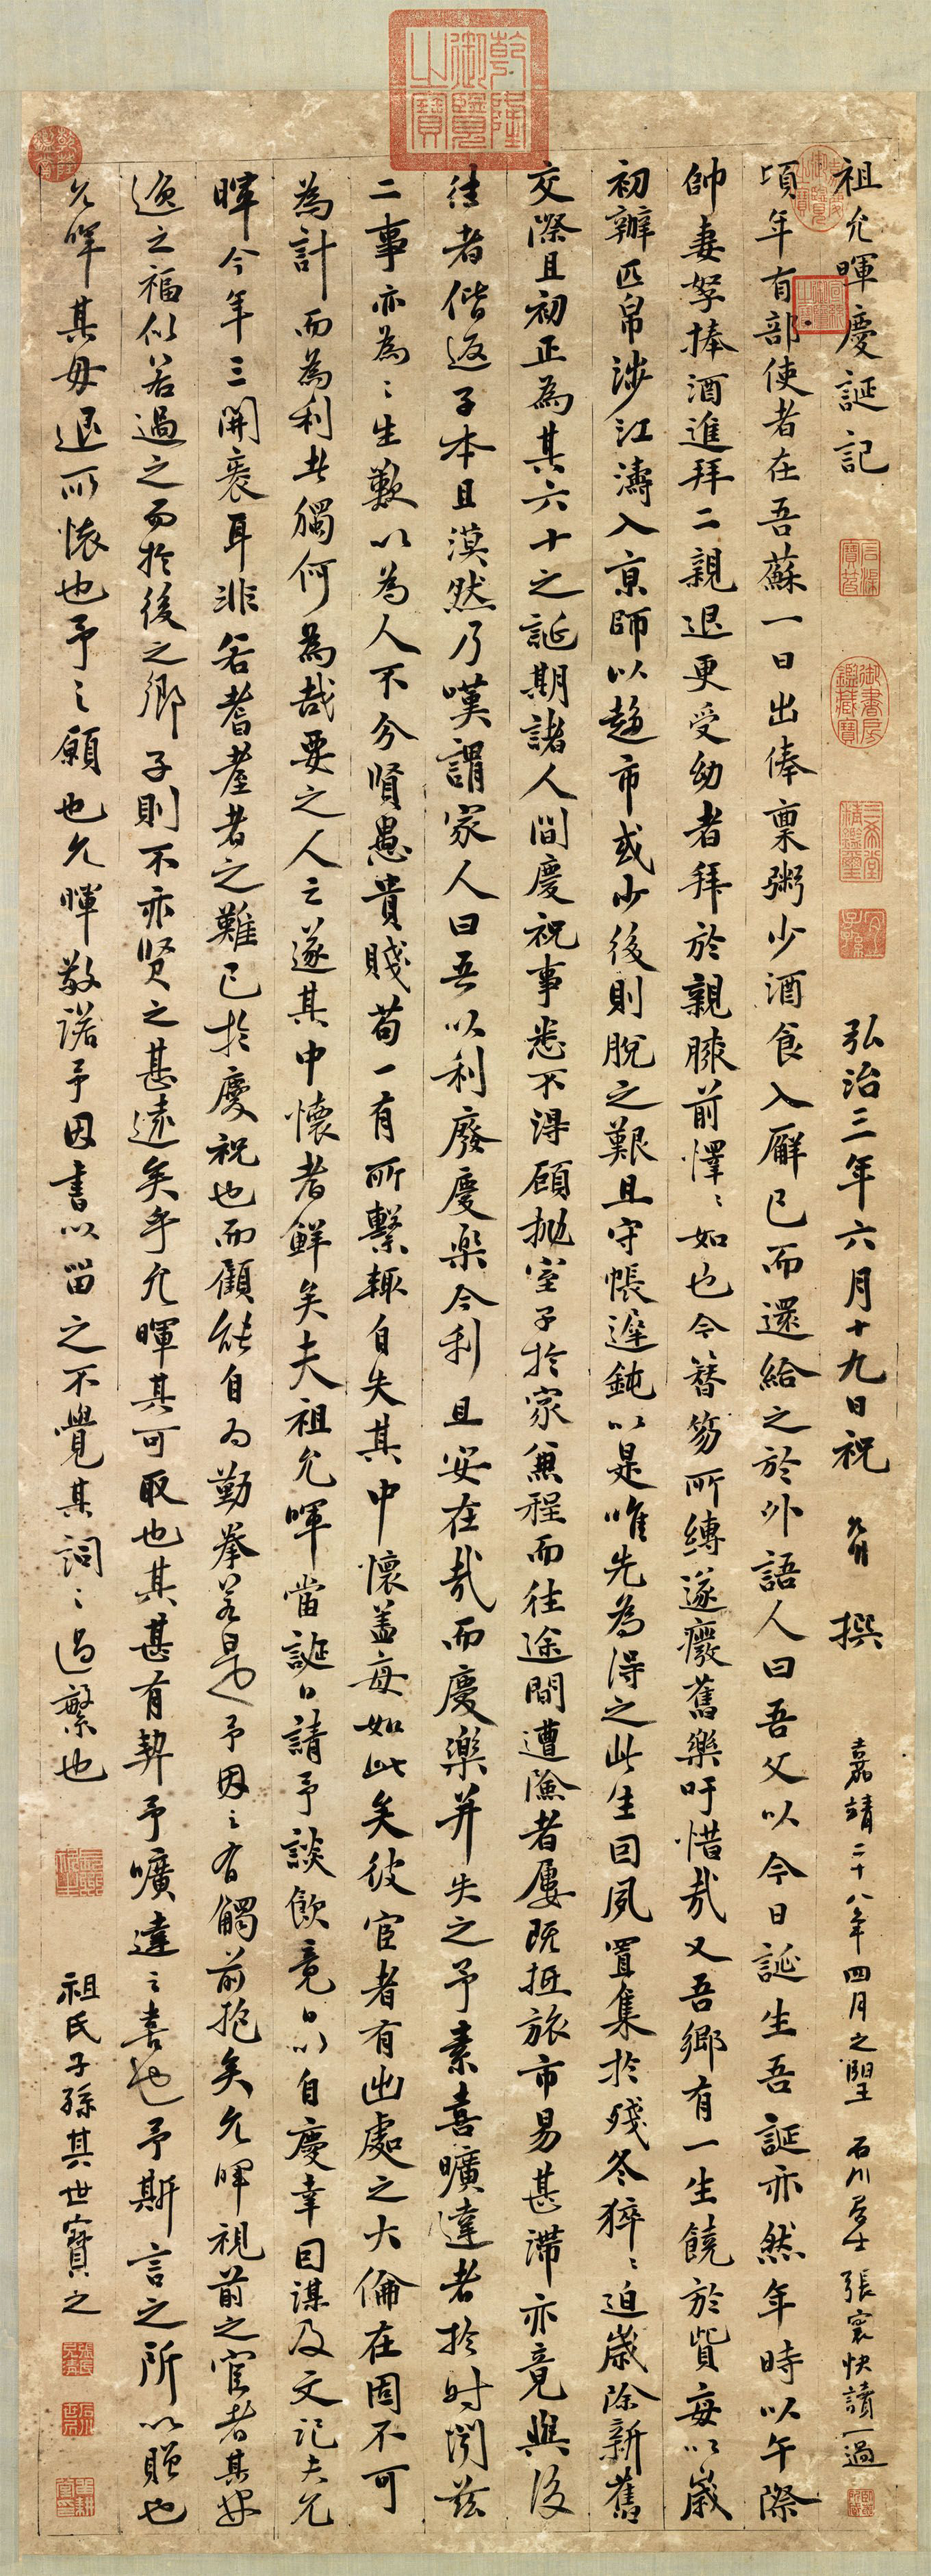 祖允暉慶誕記
弘治三年六月十九日祝 允明 撰
嘉靖二十八年四月之望 石川居士張寰快讀一過
頃年有部使者在吾蘇一日出俸稟粥少酒食入廨已而還給之於外語人曰吾父以今日誕生吾誕亦然年時以午際
帥妻孥捧酒進拜二親退更受幼者拜於親膝前懌〻如也今簪笏所縛遂癈舊樂吁惜哉又吾鄉有一生饒於貲每以歲
初辦匹帛涉江濤入京師以趨市或少後則脫之艱且守帳遲鈍以是唯先為得之此生回夙置集於殘冬猝〻迫歲除新舊
交際且初正為其六十之誕期諸人間慶祝事悉不得顧拋室子於家兼程而往途間遭險者屢既抵旅市易甚滯亦竟與後
往者偕返子本且漠然乃嘆謂家人曰吾以利廢慶樂今利且安在哉而慶樂并失之予素喜曠達者於时閔茲
二事亦為〻生歎以為人不分賢愚貴賤苟一有所繫輒自失其中懷盖每如此矣彼宦者有出處之大倫在固不可
為計而為利者獨何為哉要之人之遂其中懷者鮮矣夫祖允暉當誕日請予談飲竟日以自慶幸目謀及文記夫允
暉今年三開袠耳非若耆耋者之難已於慶祝也而顧能自为勤拳若是予因之有觸前抱矣允暉視前之宦者其安
逸之福似若過之而於後之鄉子則不亦贤之甚遠矣乎允暉其可取也其甚有契予曠達之喜也予斯言之所以贈也
允暉其毋退所懷也予之願也允暉敬諾予因書以畱之不覺其詞〻過繁也
祖氏子孫其世寶之
乾隆御覽之寶
御書房鑑藏寶
三希堂精鑑璽
宜子孫
石渠寶笈